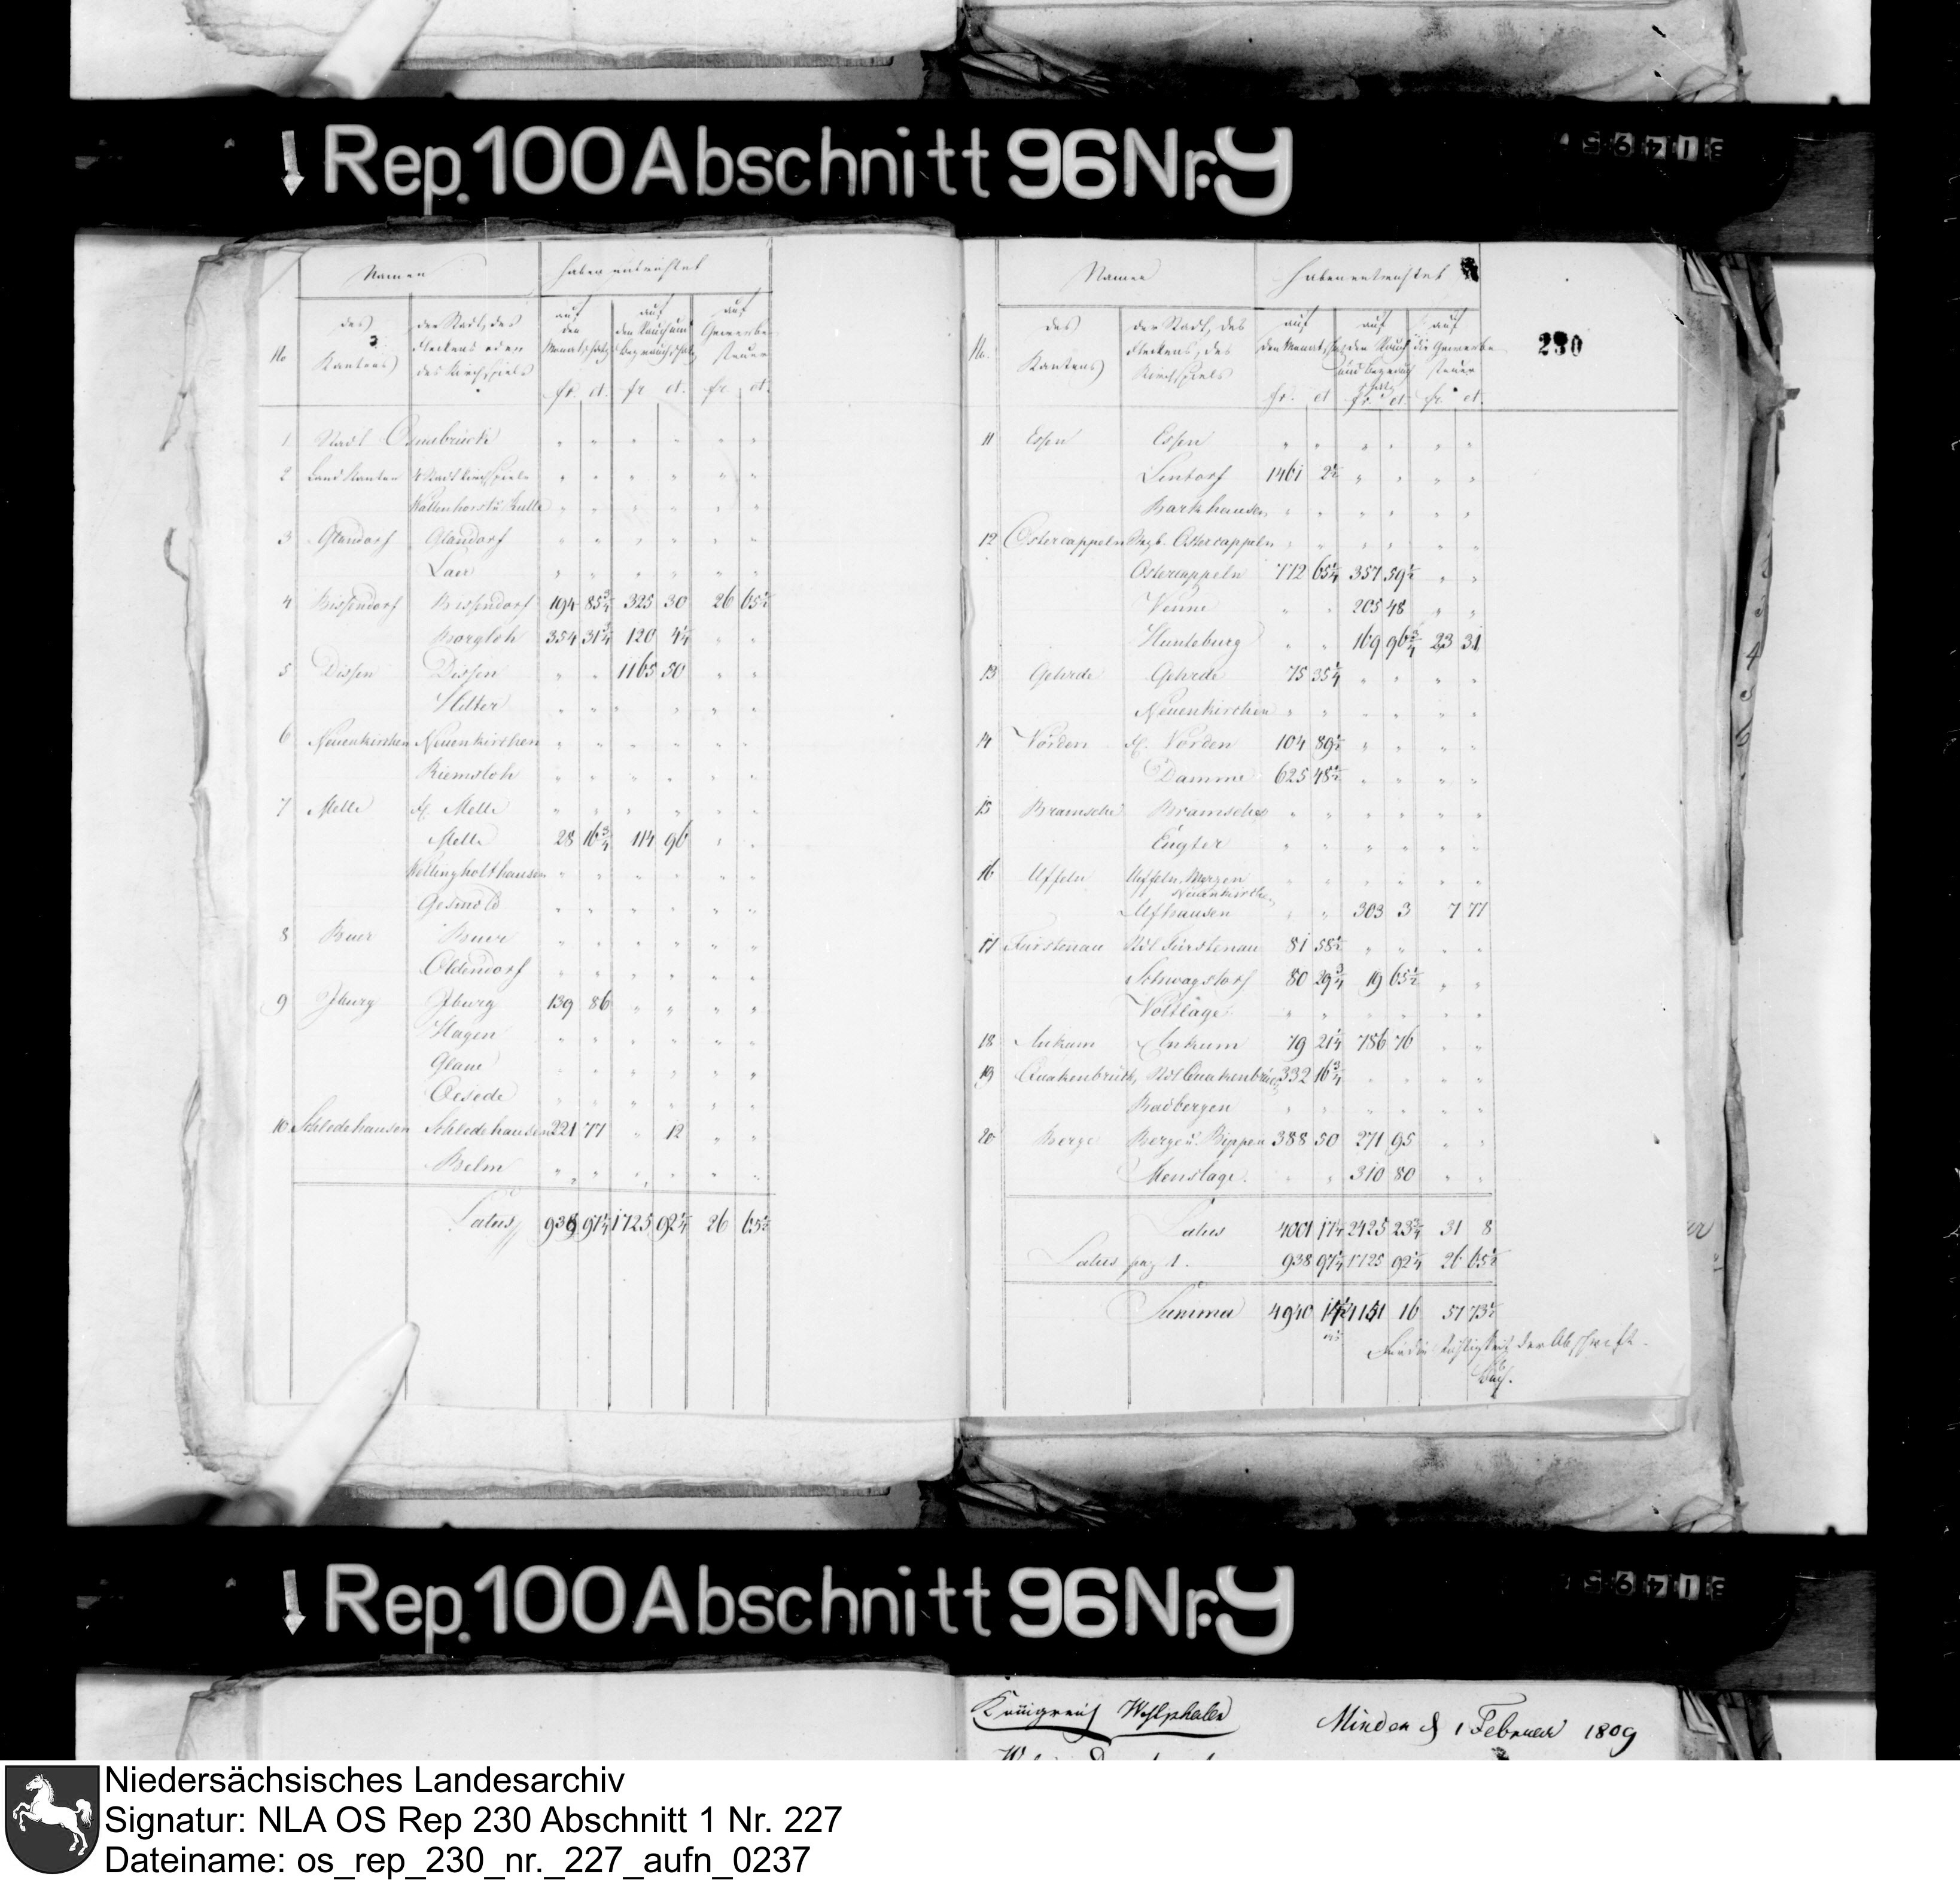 ↓ Rep. 100 Abschnitt 96 Nr. 9
Namen haben entrichtet
No des Kantons der Stadt, des Fleckens oder des Kirchspiels auf den Monatschatz auf den Rauch und auf Gewerbe steuer
fr. ct. fr ct. fr. ct.
1 Stadt Osnabrück " " " " " "
2 Land Kanton 4 Stadtkirchspiele " " " " " "
Wallenhorst u. Rulle " " " " " "
3 Glandorf Glandorf " " " " " "
Laer " " " " " "
4 Bissendorf Bissendorf 194 85 3/4 325 30 26 65 1/2
Borgloh 354 31 3/4 120 4 1/4 " "
5 Dissen Dissen " " 1165 50 " "
Hilter " " " " " "
6 Neuenkirchen Neuenkirchen " " " " " "
Riemsloh " " " " " "
7 Melle fl. Melle " " " " " "
Melle 28 16 3/4 114 96 " "
Wellingholthausen " " " " " "
Gesmold " " " " " "
8 Buer Buer " " " " " "
Oldendorf " " " " " "
9 Iburg Iburg 139 86 " " " "
Hagen " " " " " "
Glane " " " " " "
Oesede " " " " " "
10 Schledehausen Schledehausen 221 77 " 12 " "
Belm " " " " " "
Latus 938 97 1/4 1725 92 1/4 26 65 1/2
230
Namen haben entrichtet
No. des Kantons der Stadt, des Fleckens, des Kirchspiels auf den Monatschatz auf den Rauch und auf die Gewerbe steuer
fr. ct fr. ct fr. ct.
11 Essen Essen " " " " " "
Lintorf 1461 2 1/2 " " " "
Barkhausen " " " " " "
12 Ostercappeln Wgb. Ostercappeln " " " " " "
Ostercappeln 772 65 1/4 357 59 1/2 " "
Venne " " 205 48 " "
Hunteburg " " 169 96 3/4 23 31
13 Gehrde Gehrde 75 35 1/4 " " " "
Neuenkirchen " " " " " "
14 Vörden fl. Vörden 104 89 1/2 " " " "
Damme 625 48 1/2 " " " "
15 Bramsche Bramsche " " " " " "
Engter " " " " " "
16 Uffeln Ueffeln, Merzen Neuenkirchen " " " " " "
Alfhausen " " 303 3 7 77
17 Fürstenau Stdt Fürstenau 81 58 1/2 " " " "
Schwagstorf 80 29 3/4 19 65 1/2 " "
Voltlage " " " " " "
18 Ankum Ankum 79 21 1/4 786 76 " "
19 Quakenbrück Stdt Quakenbrück 332 16 3/4 " " " "
Badbergen " " " " " "
20 Berge Berge u. Bippen 388 50 271 95 " "
Menslage " " 310 80 " "
Latus 4001 17 1/4 2425 23 3/4 31 8
Latus pag 1. 938 97 1/4 1725 92 1/4 26 65 1/2
Summa 4940 14 1/2 4151 16 57 73 1/2
Für die Richtigkeit der Abschrift.
↓ Rep. 100 Abschnitt 96 Nr. 9
Königreich Westphalen Minden d 1 Februar 1809
Niedersächsisches Landesarchiv
Signatur: NLA OS Rep 230 Abschnitt 1 Nr. 227
Dateiname: os_rep_230_nr._227_aufn_0237